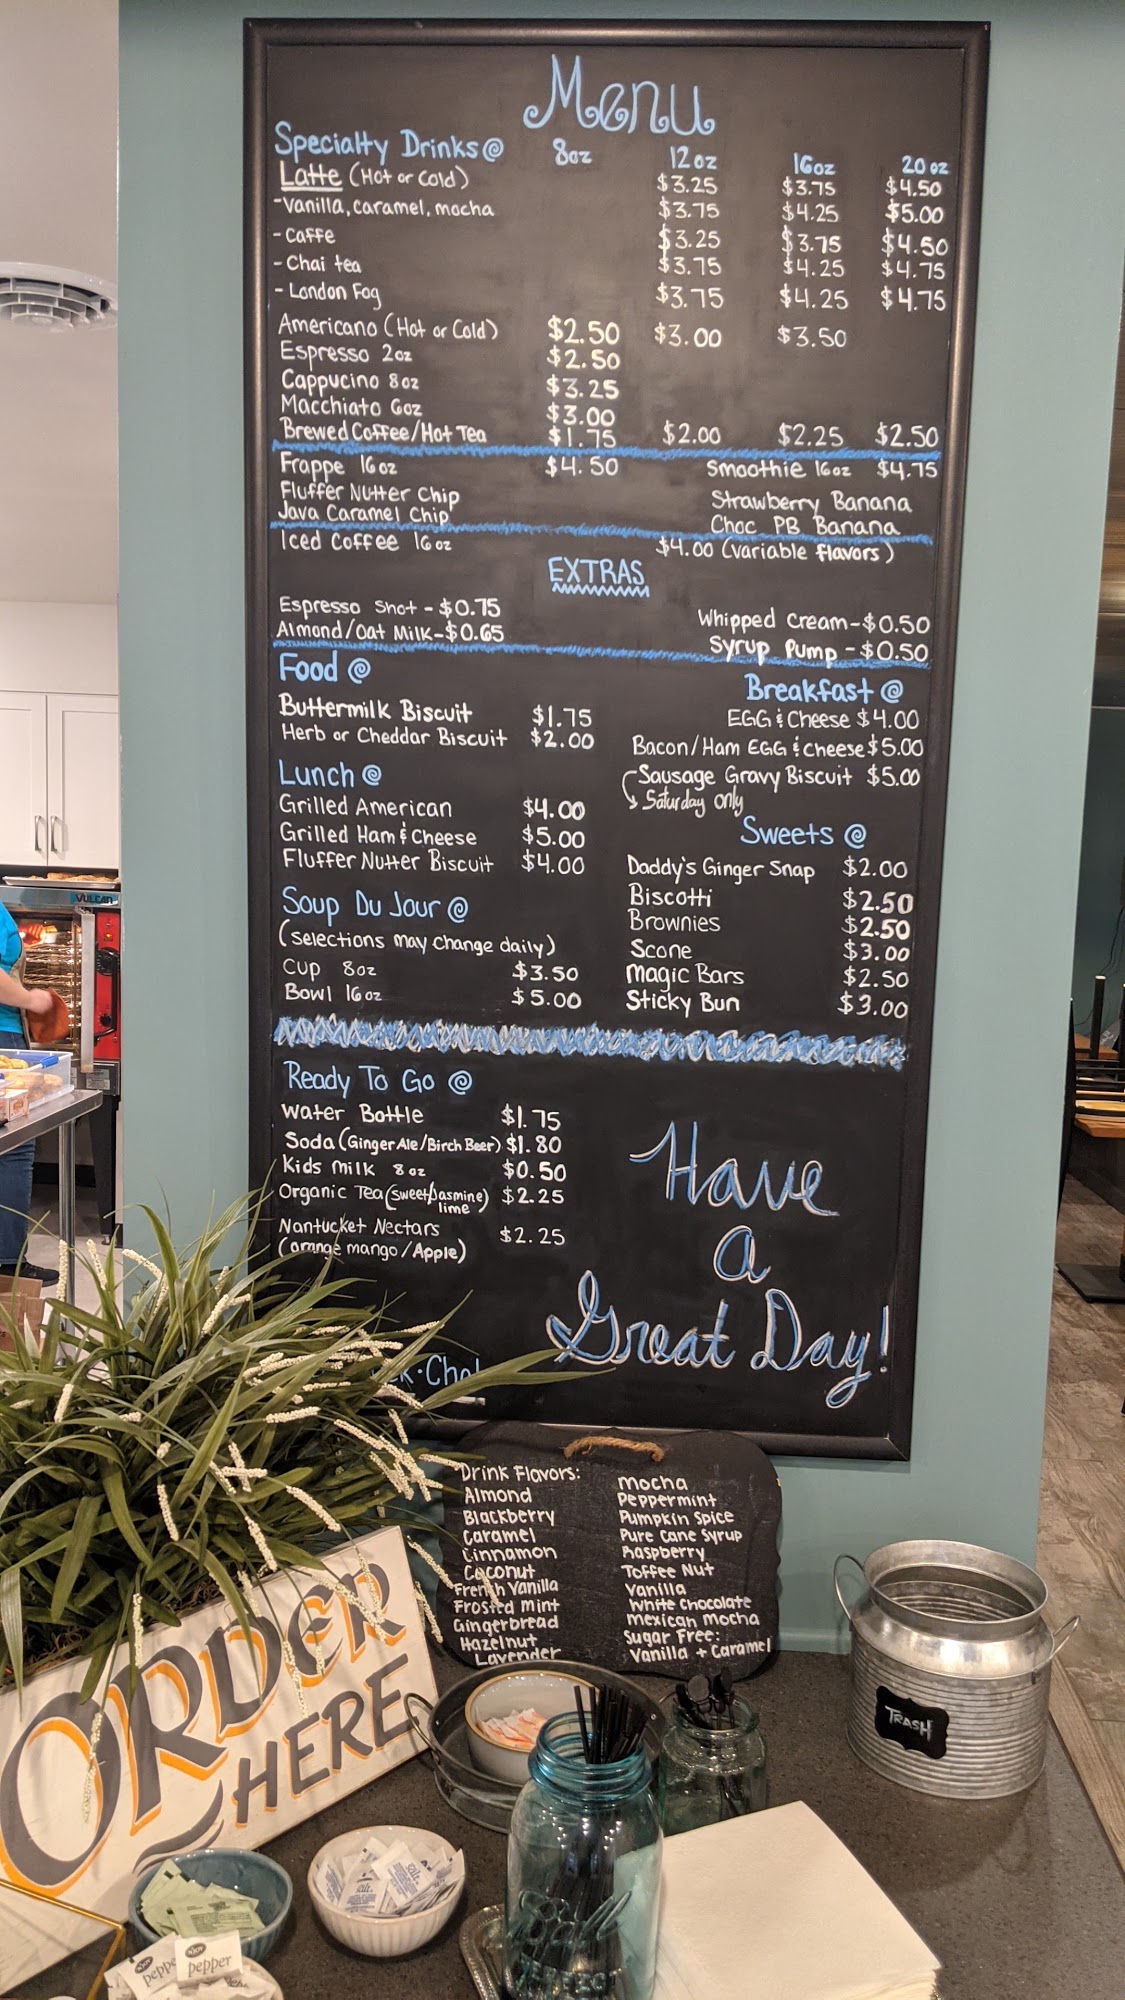 Menu
Specialty Drinks@ 8oz 12oz 16oz 20oz
Latte (Hot or Cold) $3.25 $3.75 $4.50
-Vanilla, caramel, mocha $3.75 $4.25 $5.00
-Caffe $3.25 $3.75 $4.50
-Chai tea $3.75 $4.25 $4.75
-London Fog $3.75 $4.25 $4.75
Americano (Hot or Cold) $2.50 $3.00 $3.50
Espresso 2oz $2.50
Cappucino 8oz $3.25
Macchiato 6oz $3.00
Brewed Coffee/Hot Tea $1.75 $2.00 $2.25 $2.50
Frappe 16oz $4.50
Fluffer Nutter Chip
Java Caramel Chip
Smoothie 16oz $4.75
Strawberry Banana
Choc PB Banana
Iced Coffee 16oz $4.00 (variable flavors)
EXTRAS
Espresso Shot - $0.75
Almond/Oat Milk - $0.65
Whipped Cream - $0.50
Syrup Pump - $0.50
Food @
Buttermilk Biscuit $1.75
Herb or Cheddar Biscuit $2.00
Lunch @
Grilled American $4.00
Grilled Ham & Cheese $5.00
Fluffer Nutter Biscuit $4.00
Soup Du Jour @
(selections may change daily)
Cup 8oz $3.50
Bowl 16oz $5.00
Breakfast @
EGG & Cheese $4.00
Bacon/Ham EGG & Cheese $5.00
Sausage Gravy Biscuit $5.00
Saturday only
Sweets @
Daddy's Ginger Snap $2.00
Biscotti $2.50
Brownies $2.50
Scone $3.00
Magic Bars $2.50
Sticky Bun $3.00
Ready To Go @
Water Bottle $1.75
Soda (Ginger Ale/Birch Beer) $1.80
Kids Milk 8oz $0.50
Organic Tea (sweet/Jasmine lime) $2.25
Nantucket Nectars $2.25
(orange mango/Apple)
Have
a
Great Day!
Drink Flavors:
Almond
Blackberry
Caramel
Cinnamon
Coconut
French Vanilla
Frosted Mint
Gingerbread
Hazelnut
Lavender
Mocha
Peppermint
Pumpkin Spice
Pure Cane Syrup
Raspberry
Toffee Nut
Vanilla
White Chocolate
Mexican Mocha
Sugar Free:
Vanilla + Caramel
ORDER
HERE
TRASH
VULCAN
Salt
Ball
PERFECT
NJOY
pepper